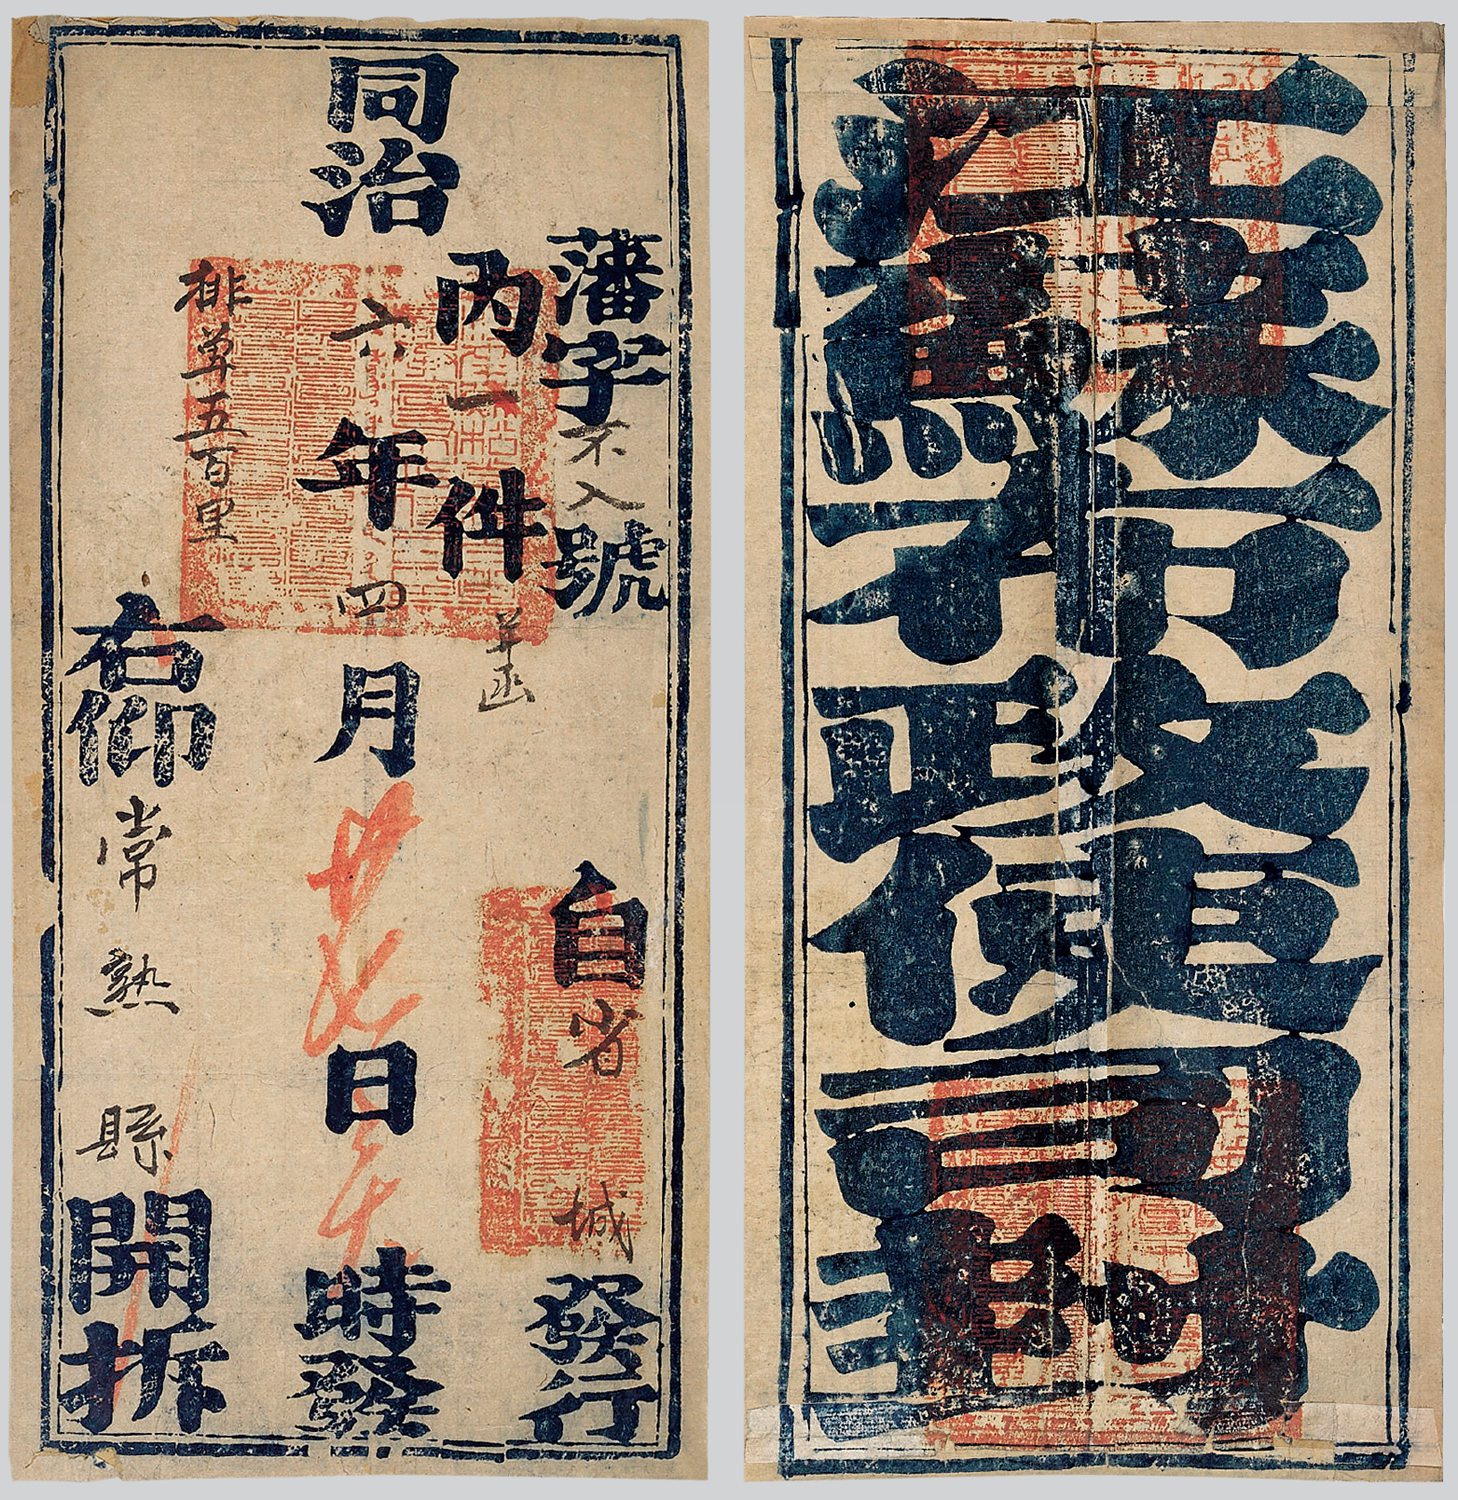 藩字不入號
自省城發行
內一件
同治六年四月日時發
排單五百里
右仰常熟縣開拆
江蘇布政使司